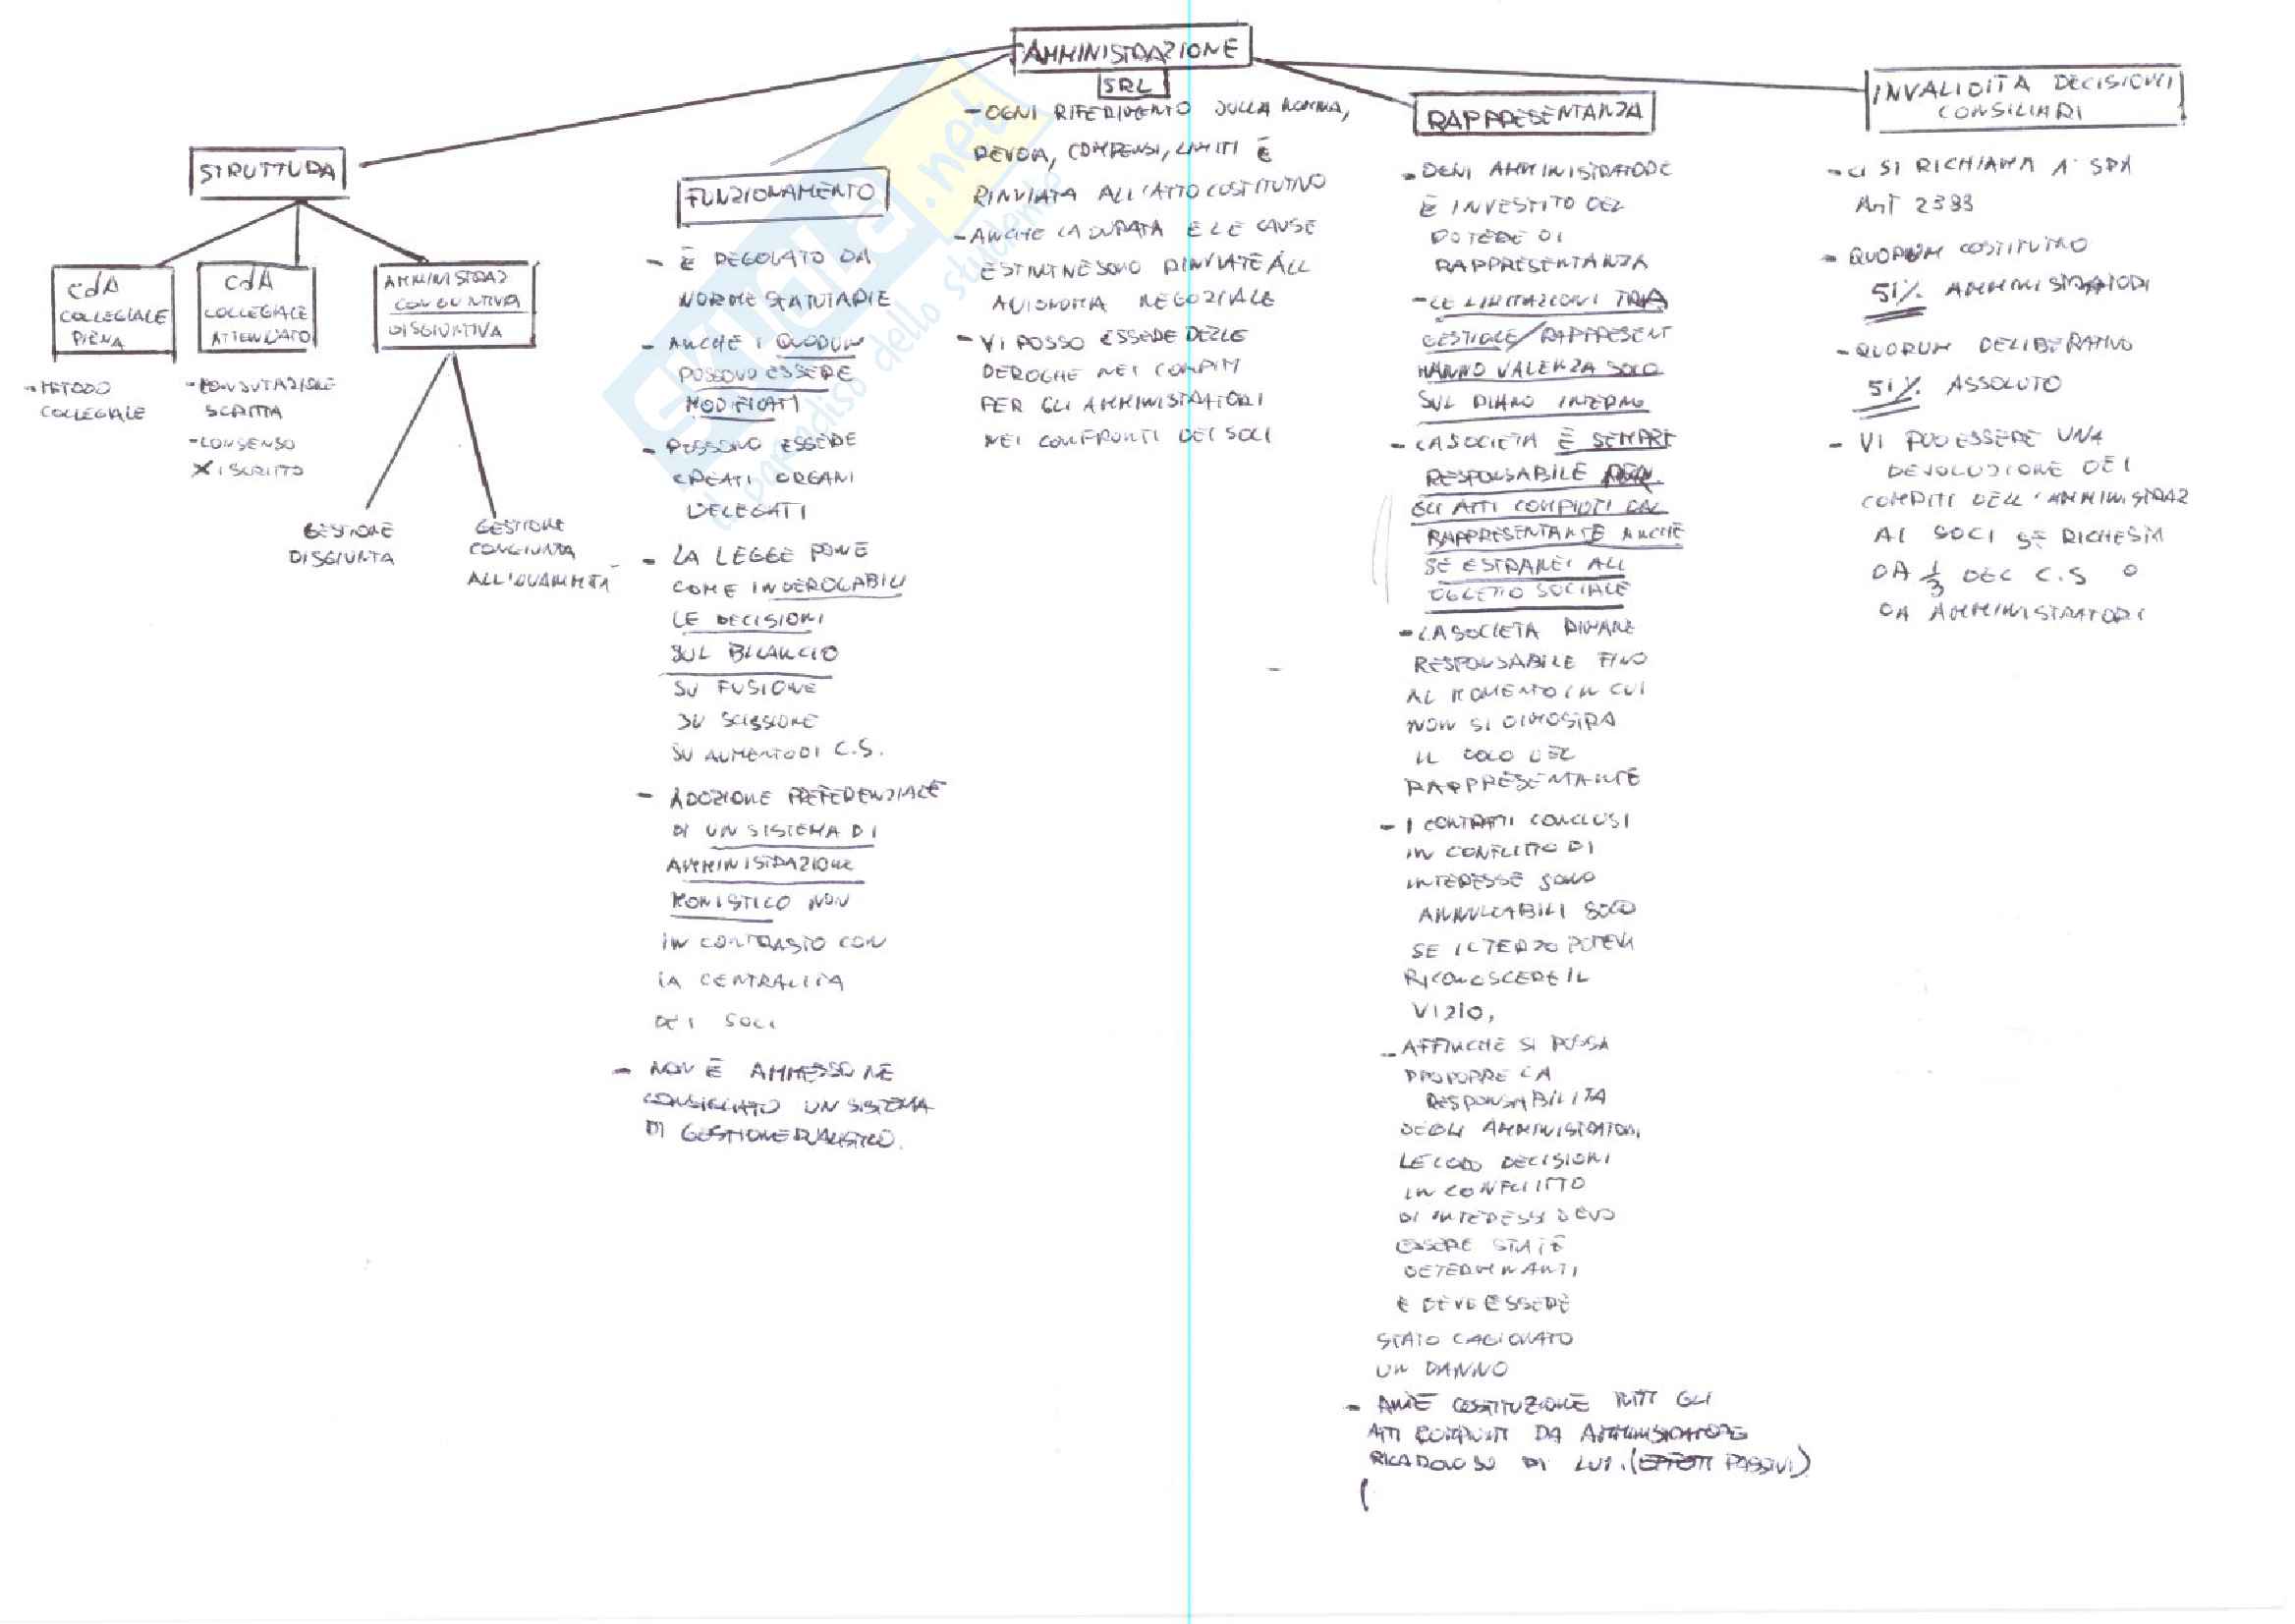 AMMINISTRAZIONE
SRL
- OGNI RIFERIMENTO SULLA NOMINA,
REVOCA, COMPENSI, LIMITI È
RINVIATA ALL'ATTO COSTITUTIVO
- ANCHE LA DURATA E LE CAUSE
ESTINTIVE SONO RINVIATE ALL
AUTONOMIA NEGOZIALE
- VI POSSO ESSERE DELLE
DEROGHE NEI COMPITI
PER GLI AMMINISTRATORI
NEI CONFRONTI DEI SOCI
STRUTTURA
CdA
COLLEGIALE
PIENA
- METODO
COLLEGIALE
CdA
COLLEGIALE
ATTENUATO
- CONSULTAZIONE
SCRITTA
- CONSENSO
X ISCRITTO
AMMINISTRAZ
CONGIUNTIVA
DISGIUNTIVA
GESTIONE
DISGIUNTA
GESTIONE
CONGIUNTA
ALL'UNANIMITÀ
FUNZIONAMENTO
- È REGOLATO DA
NORME STATUTARIE
- ANCHE I QUORUM
POSSONO ESSERE
MODIFICATI
- POSSONO ESSERE
CREATI ORGANI
DELEGATI
- LA LEGGE PONE
COME INDEROGABILI
LE DECISIONI
SUL BILANCIO
SU FUSIONE
SU SCISSIONE
SU AUMENTO DI C.S.
- ADOZIONE PREFERENZIALE
DI UN SISTEMA DI
AMMINISTRAZIONE
MONISTICO NON
IN CONTRASTO CON
LA CENTRALITÀ
DEI SOCI
- NON È AMMESSO NE
CONSIGLIATO UN SISTEMA
DI GESTIONE DUALISTICO.
RAPPRESENTANZA
- OGNI AMMINISTRATORE
È INVESTITO DEL
POTERE DI
RAPPRESENTANZA
- LE LIMITAZIONI TRA
GESTIONE/RAPPRESENT
HANNO VALENZA SOLO
SUL PIANO INTERNO
- LA SOCIETÀ È SEMPRE
RESPONSABILE PER
GLI ATTI COMPIUTI DAL
RAPPRESENTANTE ANCHE
SE ESTRANEI ALL
OGGETTO SOCIALE
- LA SOCIETÀ RIMANE
RESPONSABILE FINO
AL MOMENTO IN CUI
NON SI DIMOSTRA
IL DOLO DEL
RAPPRESENTANTE
- I CONTRATTI CONCLUSI
IN CONFLITTO DI
INTERESSE SONO
ANNULLABILI SOLO
SE IL TERZO POTEVA
RICONOSCERE IL
VIZIO,
- AFFINCHÉ SI POSSA
PROPORRE LA
RESPONSABILITÀ
DEGLI AMMINISTRATORI,
LE LORO DECISIONI
IN CONFLITTO
DI INTERESSI DEVO
ESSERE STATE
DETERMINANTI
E DEVE ESSERE
STATO CAGIONATO
UN DANNO
- ANTE COSTITUZIONE TUTTI GLI
ATTI COMPIUTI DA AMMINISTRATORE
RICADONO SU DI LUI. (EFFETTI PASSIVI)
(
INVALIDITÀ DECISIONI
CONSILIARI
- CI SI RICHIAMA A SPA
ART 2388
- QUORUM COSTITUTIVO
51% AMMINISTRATORI
- QUORUM DELIBERATIVO
51% ASSOLUTO
- VI PUO ESSERE UNA
DEVOLUZIONE DEI
COMPITI DELL'AMMINISTRAZ
AI SOCI SE RICHIESTA
DA 1/3 DEL C.S O
DA AMMINISTRATORI
SKUOLA.net
il paradiso dello studente